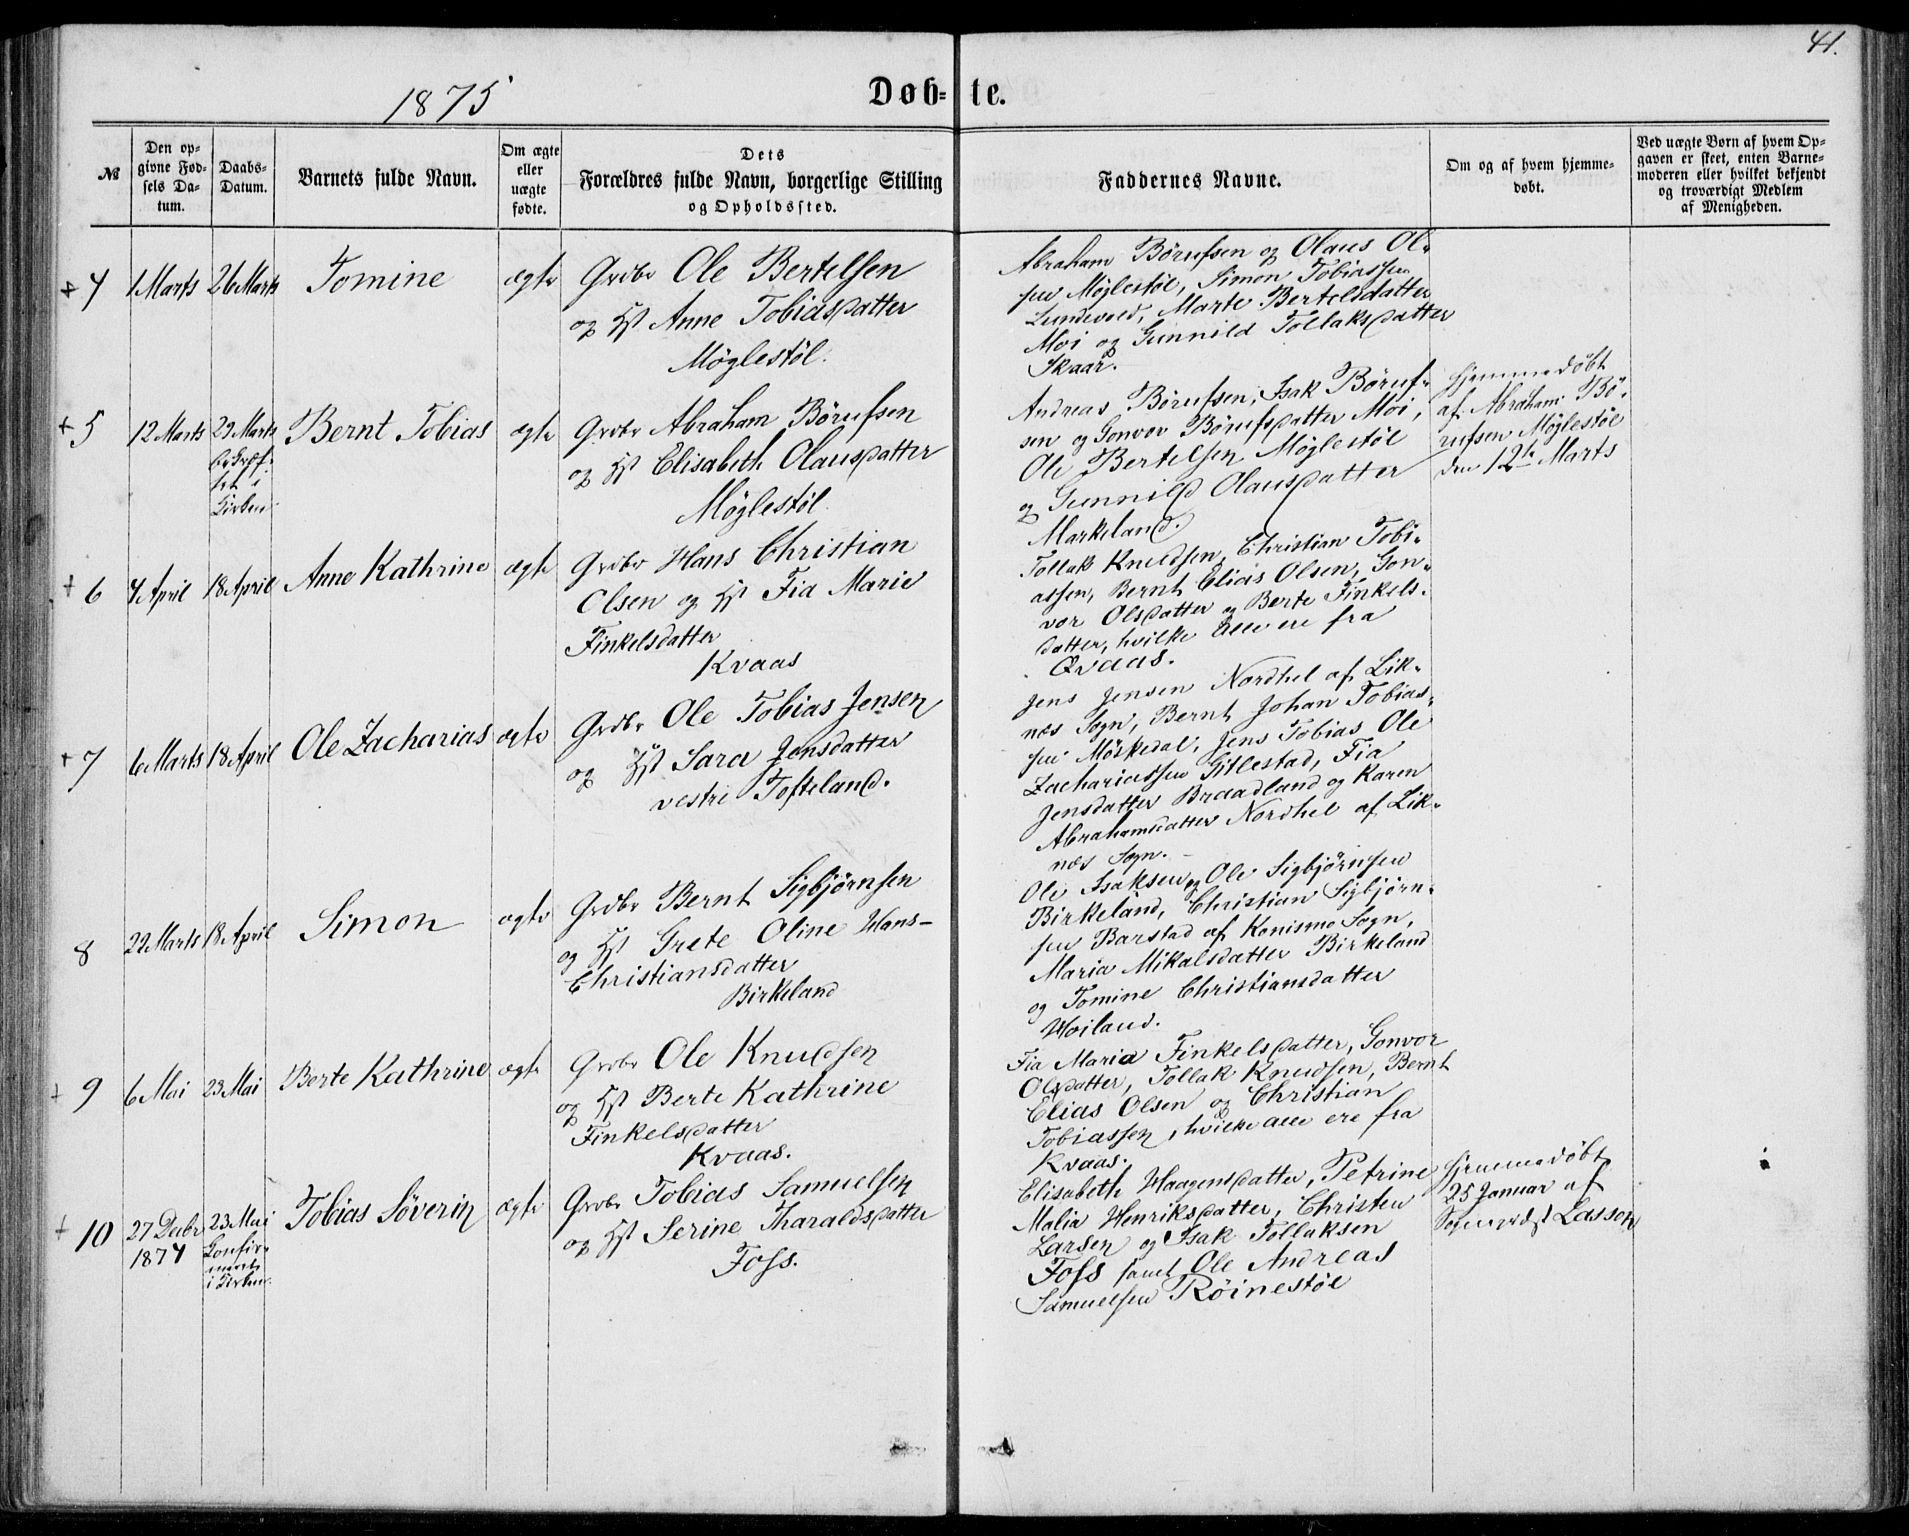 41.
1875
Døb- te.
№
Den op-
givne Fød-
sels Da-
tum.
Daabs-
Datum.
Barnets fulde Navn.
Om ægte
eller
uægte
fødte.
Dets
Forældres fulde Navn, borgerlige Stilling
og Opholdssted.
Faddernes Navne.
Om og af hvem hjemme-
døbt.
Ved uægte Børn af hvem Op-
gaven er skeet, enten Barne-
moderen eller hvilket bekjendt
og troværdigt Medlem
af Menigheden.
+ 4
1 Marts
26 Marts
Tomine
ægte
Grdbr Ole Bertelsen
og Hst Anne Tobiasdatter
Møglestøl.
Abraham Børufsen og Olaus Ol-
sen Møglestøl, Simon Tobiassen
Lundevold, Marte Bertelsdatter
Moi og Gunnild Tollaksdatter
Skaar.
+ 5
12 Marts
29 Marts
bekræf-
tet i
Kirken
Bernt Tobias
ægte
Grdbr Abraham Børufsen
og Hst Elisabeth Olausdatter
Møglestøl.
Andreas Børufsen, Isak Børuf-
sen og Gonvor Børufsdatter Moi,
Ole Bertelsen Møglestøl
og Gunnild Olausdatter
Markeland.
hjemmedøbt
af Abraham Bø-
rufsen Møglestøl
den 12te Marts
+ 6
4 April
18 April
Anne Kathrine
ægte
Grdbr Hans Christian
Olsen og Hst Fia Marie
Finkelsdatter
Kvaas
Tollak Knudsen, Christian Tobi-
assen, Bernt Elias Olsen, Gon-
vor Olsdatter og Berte Finkels-
datter, hvilke alle ere fra
Qvaas.
+ 7
6 Marts
18 April
Ole Zacharias
ægte
Grdbr Ole Tobias Jensen
og Hst Sara Jensdatter
vestre Tofteland.
Jens Jensen Nordhel af Lik-
næs Sogn, Bernt Johan Tobias-
sen Møskedal, Jens Tobias Ole
Zachariassen Gitlestad, Fia
Jensdatter Braadland og Karen
Abrahamsdatter Nordhel af Lik-
næs Sogn.
8
22 Marts
18 April
Simon
ægte
Grdbr Bernt Sigbjørnsen
og Hst Grete Oline Hans-
Christiansdatter
Birkeland
Ole Isaksen og Ole Sigbjørnsen
Birkeland, Christian Sigbjørn-
sen Barstad af Konismo Sogn,
Maria Mikalsdatter Birkeland
og Tomine Christiansdatter
Hoiland.
+ 9
6 Mai
23 Mai
Berte Kathrine
ægte
Grdbr Ole Knudsen
og Hst Berte Kathrine
Finkelsdatter
Kvaas.
Fia Maria Finkelsdatter, Gonvor
Olsdatter, Tollak Knudsen, Bernt
Elias Olsen og Christian
Tobiassen, hvilke alle ere fra
Kvaas.
+ 10
27 Decbr
1874
23 Mai
Confir-
meret
i Kirken
Tobias Søverin
ægte
Grdbr Tobias Samuelsen
og Hst Serine Tharaldsdatter
Foss.
Elisabeth Haagensdatter, Petrine
Malia Henriksdatter, Christen
Larsen og Isak Tollaksen
Foss samt Ole Andreas
Samuelsen Røinestøl
hjemmedøbt
25 Januar af
Sognepræst Lasson